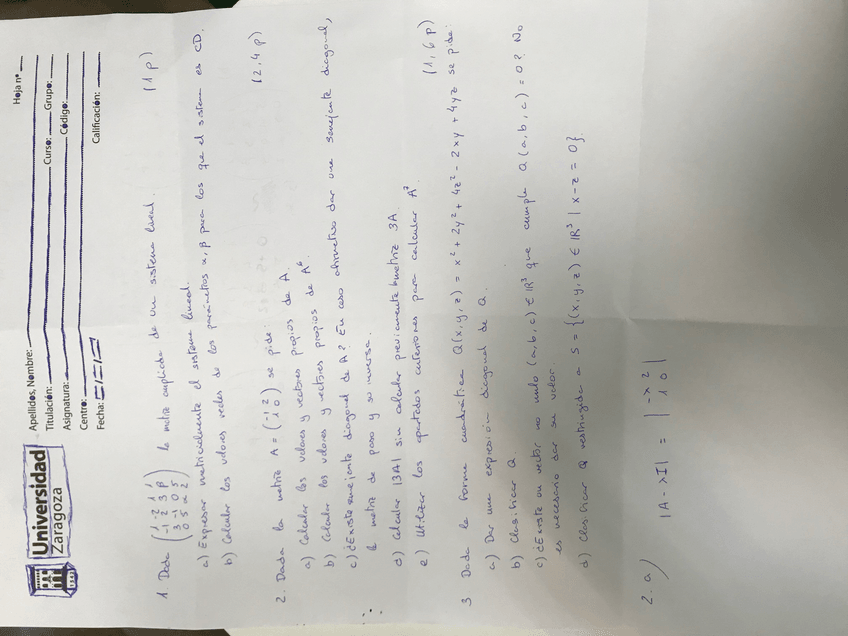 Universidad
Zaragoza
1542
Apellidos, Nombre:
Titulación: Curso: Grupo:
Asignatura: Código:
Centro:
Fecha: Calificación:
Hoja nº
1 Dada (1 -2 1 1 / -1 2 3 β / 3 -1 0 5 / 0 5 α 2) la matriz ampliada de un sistema lineal. (1 p)
a) Expresar matricialmente el sistema lineal.
b) Calcular los valores reales de los parámetros α, β para los que el sistema es CD.
2. Dada la matriz A = (-1 2 / 1 0) se pide: (2,4 p)
a) Calcular los valores y vectores propios de A.
b) Calcular los valores y vectores propios de A⁶
c) ¿Existe semejante diagonal de A? En caso afirmativo dar una semejante diagonal,
la matriz de paso y su inversa.
d) Calcular |3A| sin calcular previamente la matriz 3A.
e) Utilizar los apartados anteriores para calcular A⁷ (1,6 p)
3 Dada la forma cuadrática Q(x,y,z) = x² + 2y² + 4z² - 2xy + 4yz se pide:
a) Dar una expresión diagonal de Q.
b) Clasificar Q
c) ¿Existe un vector no nulo (a,b,c) ∈ IR³ que cumpla Q(a,b,c) = 0? No
es necesario dar su valor.
d) Clasificar Q restringida a S = {(x,y,z) ∈ IR³ | x-z = 0}.
2. a) |A - λI| = | -λ 2 / 1 0 |